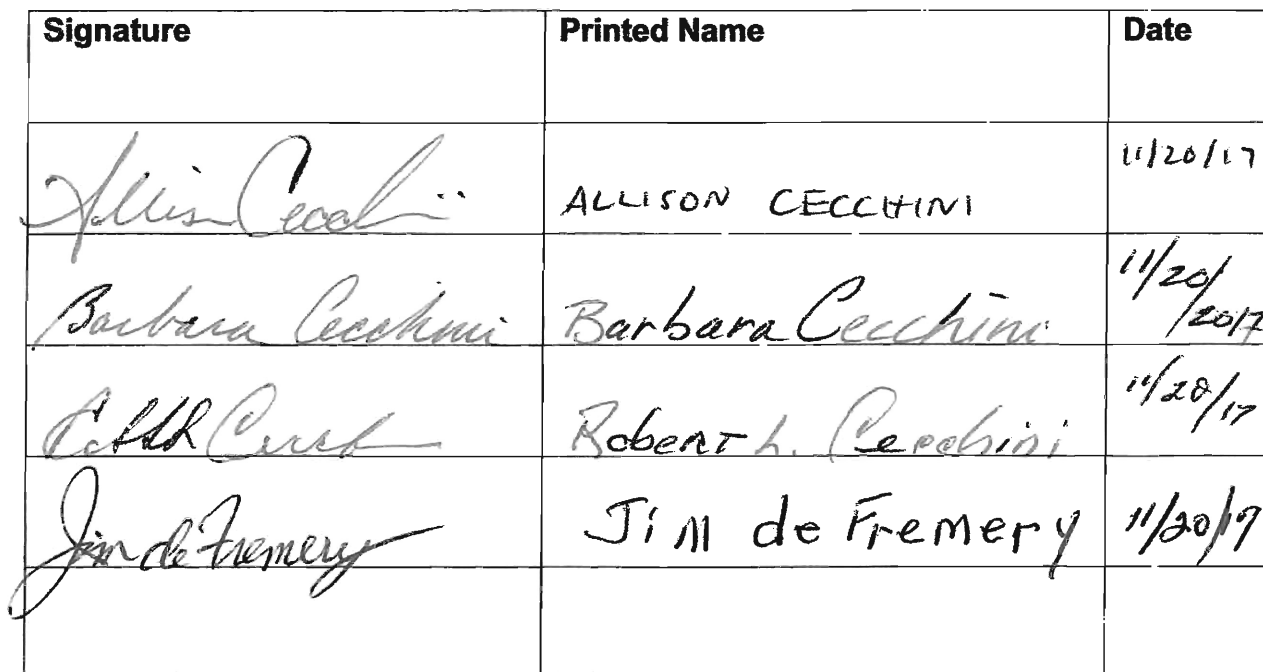 Signature Printed Name Date
Allison Cecchini ALLISON CECCHINI 11/20/17
Barbara Cecchini Barbara Cecchini 11/20/2017
Cecchini Robert L. Cecchini 11/20/17
Jim de Fremery Jim de Fremery 11/20/17